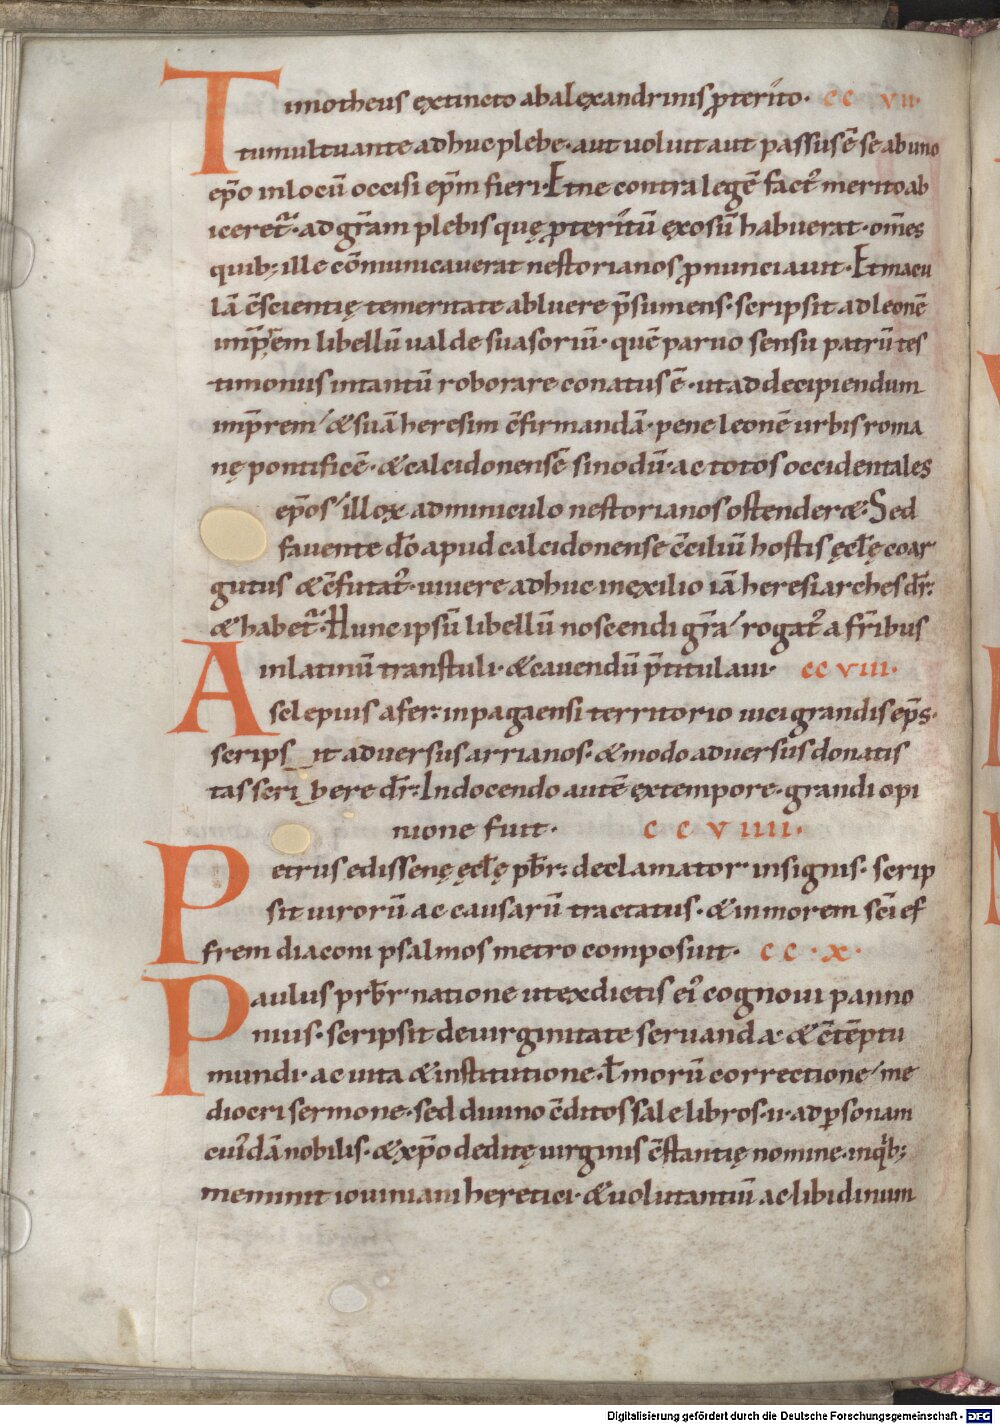 Timotheus extincto ab alexandrinis p̱terito· CC VII·
tumultuante adhuc plebe· aut uoluit aut passus ē se ab uno
ep̄o in locū occisi ep̄m fieri· Et ne contra legē fact᾿ merito ab
iceret᷑· ad gr̄am plebis quę p̱teritū ęxosū habuerat· om̄es
quib; ille cōmunicauerat nestorianos p̱nunciauit· Et macu
lā c̄scientię temeritate abluere p̄sumens· scripsit ad leonē
imp̄rem libellū ualde suasoriū· quē paruo sensu patrū tes
timoniis in tantū roborare conatus ē· ut ad decipiendum
imp̄rem / & suā heresim c̄firmandā· pene leonē urbis roma
nę pontificē· & calcidonensē sinodū· ac totos occidentales
ep̄os / illoꝝ adminiculo nestorianos ostenderæ· Sed
fauente d̄o apud calcidonense c̄ciliū hostis ęcl̄ę coar
gutus & c̄futat᾿· uiuere adhuc in exilio iā heresiarches dr̄:
& habet᷑· Hunc ipsū libellū noscendi gr̄a / rogat᾿ a fr̄ibus
in latinū transtuli· & cauendū p̄titulaui· CC VIII·
Asclepius afer: in pagaensi territorio uici grandis ep̄s·
scrips it aduersus arrianos· & modo aduersus donatis
tas scri bere dr̄: In docendo autē extempore· grandi opi
nione fuit· C C V IIII·
Petrus edissenę ęcl̄ę pb̄r: declamator insignis· scrip
sit uirorū ac causarū tractatus· & in morem sc̄i ef
frem diaconi psalmos metro composuit· C C · X ·
Paulus prb̄r· natione ut ex dictis ei᾿ cognoui panno
nius· scripsit de uirginitate seruanda· & c̄tēptu
mundi· ac uita & institutione· ł morū correctione / me
diocri sermone· sed diuino c̄ditos sale libros· ii· ad ꝑsonam
cui᾿dā nobilis· & xp̄o deditę uirginis c̄stantię nomine· in qͥb;
meminit iouiniani heretici· & uoluitantiū ac libidinum
Digitalisierung gefördert durch die Deutsche Forschungsgemeinschaft - DFG